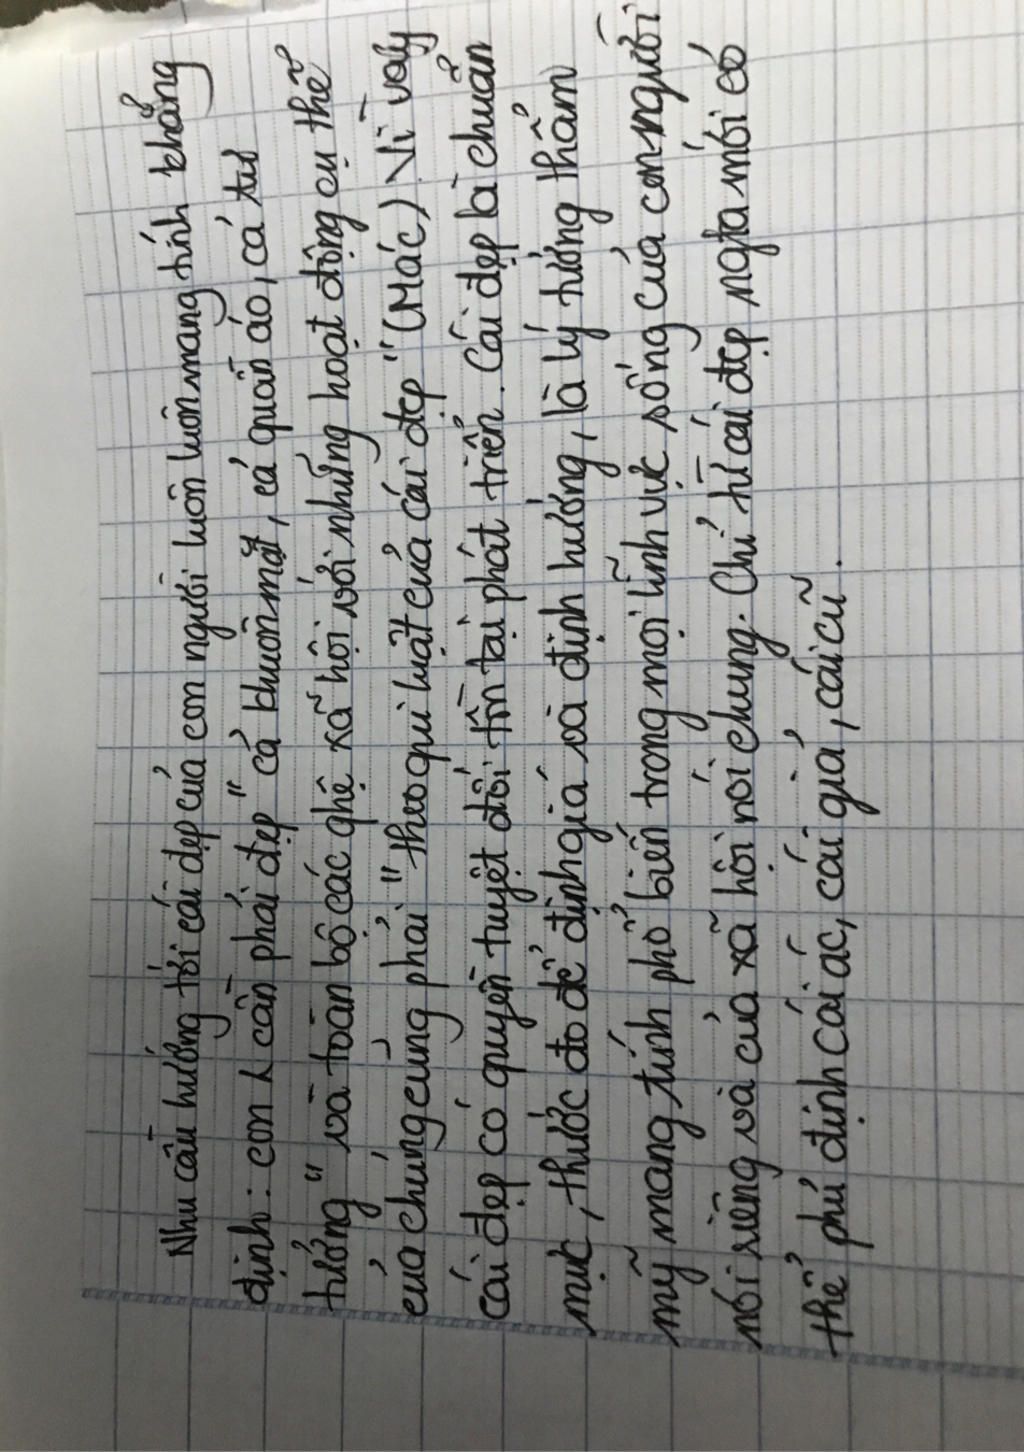 Nhu cầu hướng tới cái đẹp của con người luôn luôn mang tính khẳng
định: con λ cần phải đẹp "cả khuôn mặt, cả quần áo, cả tư
tưởng" và toàn bộ các ghệ xã hội với những hoạt động cụ thể
của chúng cũng phải "theo qui luật của cái đẹp" (Mác). Vì vậy
cái đẹp có quyền tuyệt đối tồn tại phát triển. Cái đẹp là chuẩn
mực, thước đo để định giá và định hướng, là lý tưởng thẩm
mỹ mang tính phổ biến trong mọi lĩnh vực sống của con người
nói riêng và của xã hội nói chung. Chỉ từ cái đẹp ngta mới có
thể phủ định cái ác, cái giả, cái cũ.